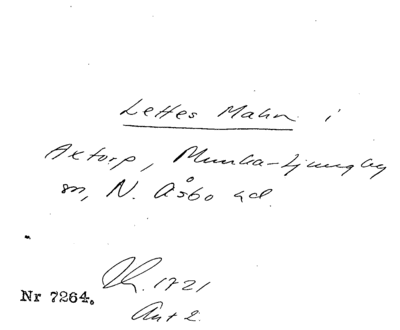 Lettes Mahn i
Axtorp, Munka-Ljungby
sn, N. Åsbo hd.
Nr 7264.
1721
Ant 2.